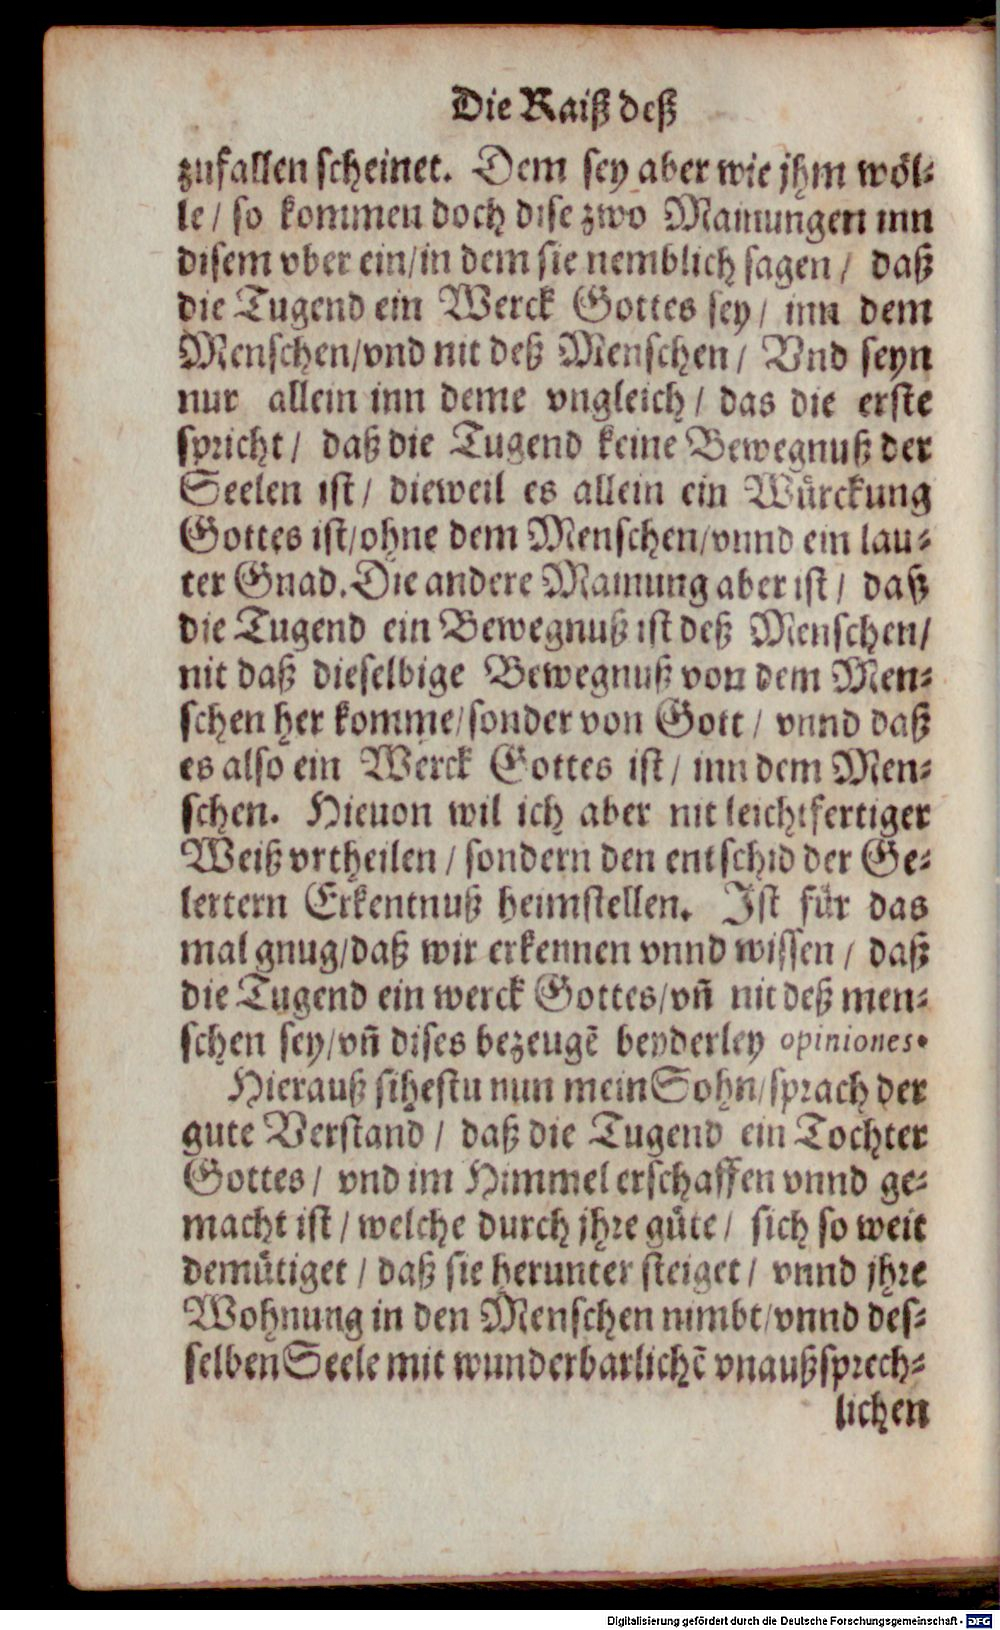 Die Raiß deß
zufallen scheinet. Dem sey aber wie jhm wöl-
le / so kommen doch dise zwo Mainungen inn
disem vber ein/in dem sie nemblich sagen / daß
die Tugend ein Werck Gottes sey / inn dem
Menschen/vnd nit deß Menschen / Vnd seyn
nur allein inn deme vngleich / das die erste
spricht / daß die Tugend keine Bewegnuß der
Seelen ist / dieweil es allein ein Würckung
Gottes ist/ohne dem Menschen/vnnd ein lau-
ter Gnad. Die andere Mainung aber ist / daß
die Tugend ein Bewegnuß ist deß Menschen/
nit daß dieselbige Bewegnuß von dem Men-
schen her komme/sonder von Gott / vnnd daß
es also ein Werck Gottes ist / inn dem Men-
schen. Hieuon wil ich aber nit leichtfertiger
Weiß vrtheilen / sondern den entschid der Ge-
lertern Erkentnuß heimstellen. Ist für das
mal gnug/daß wir erkennen vnnd wissen / daß
die Tugend ein werck Gottes/vñ nit deß men-
schen sey/vñ dises bezeugẽ beyderley opiniones.
Hierauß sihestu nun mein Sohn/sprach der
gute Verstand / daß die Tugend ein Tochter
Gottes / vnd im Himmel erschaffen vnnd ge-
macht ist / welche durch jhre güte / sich so weit
demütiget / daß sie herunter steiget / vnnd jhre
Wohnung in den Menschen nimbt/vnnd des-
selben Seele mit wunderbarlichẽ vnaußsprech-
lichen
Digitalisierung gefördert durch die Deutsche Forschungsgemeinschaft - DFG